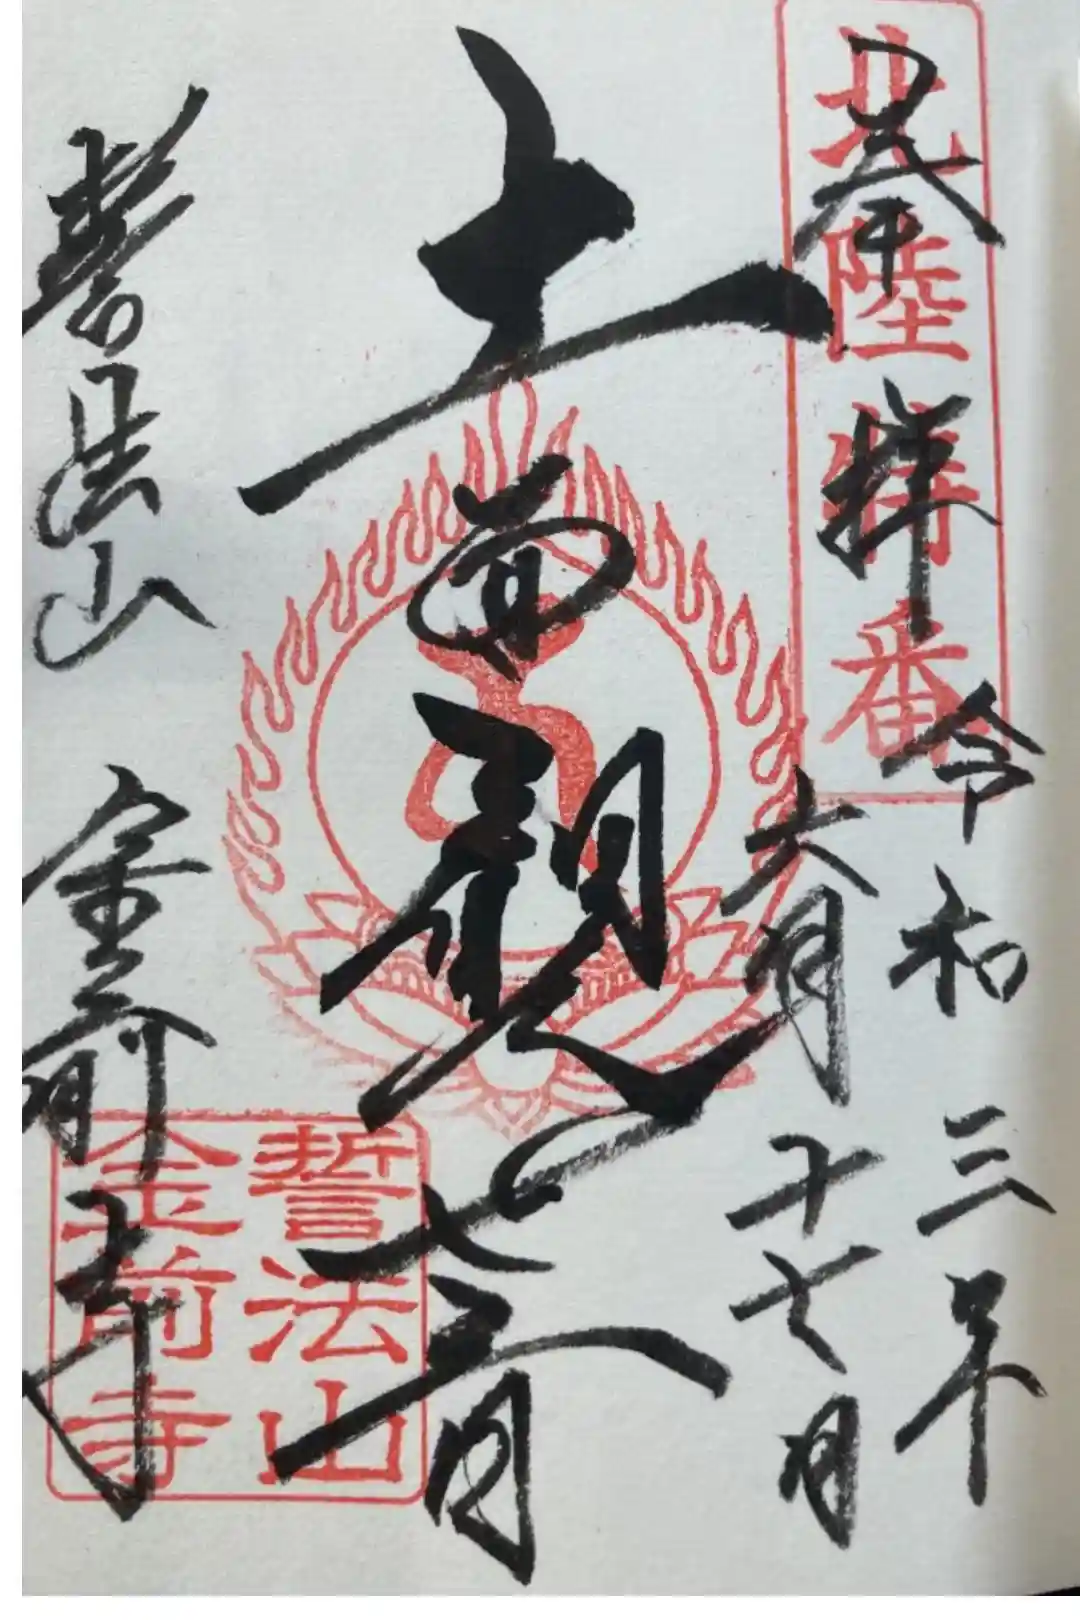 奉拝
北陸
番
令和三年
六月十七日
十一面観世音
誓法山
金前寺
誓法山
金前寺